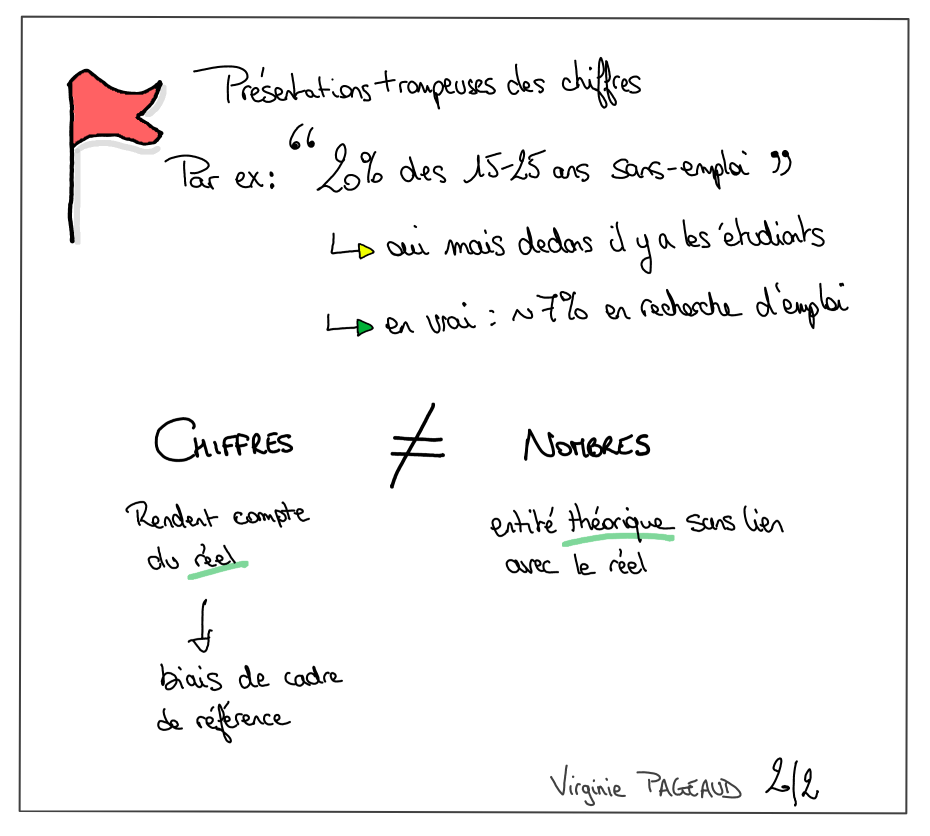 Présentations trompeuses des chiffres
Par ex: “20% des 15-25 ans sans-emploi”
oui mais dedans il y a les étudiants
en vrai : ~7% en recherche d'emploi
CHIFFRES ≠ NOMBRES
Rendent compte
du réel
entité théorique sans lien
avec le réel
biais de cadre
de référence
Virginie PAGEAUD 2/2